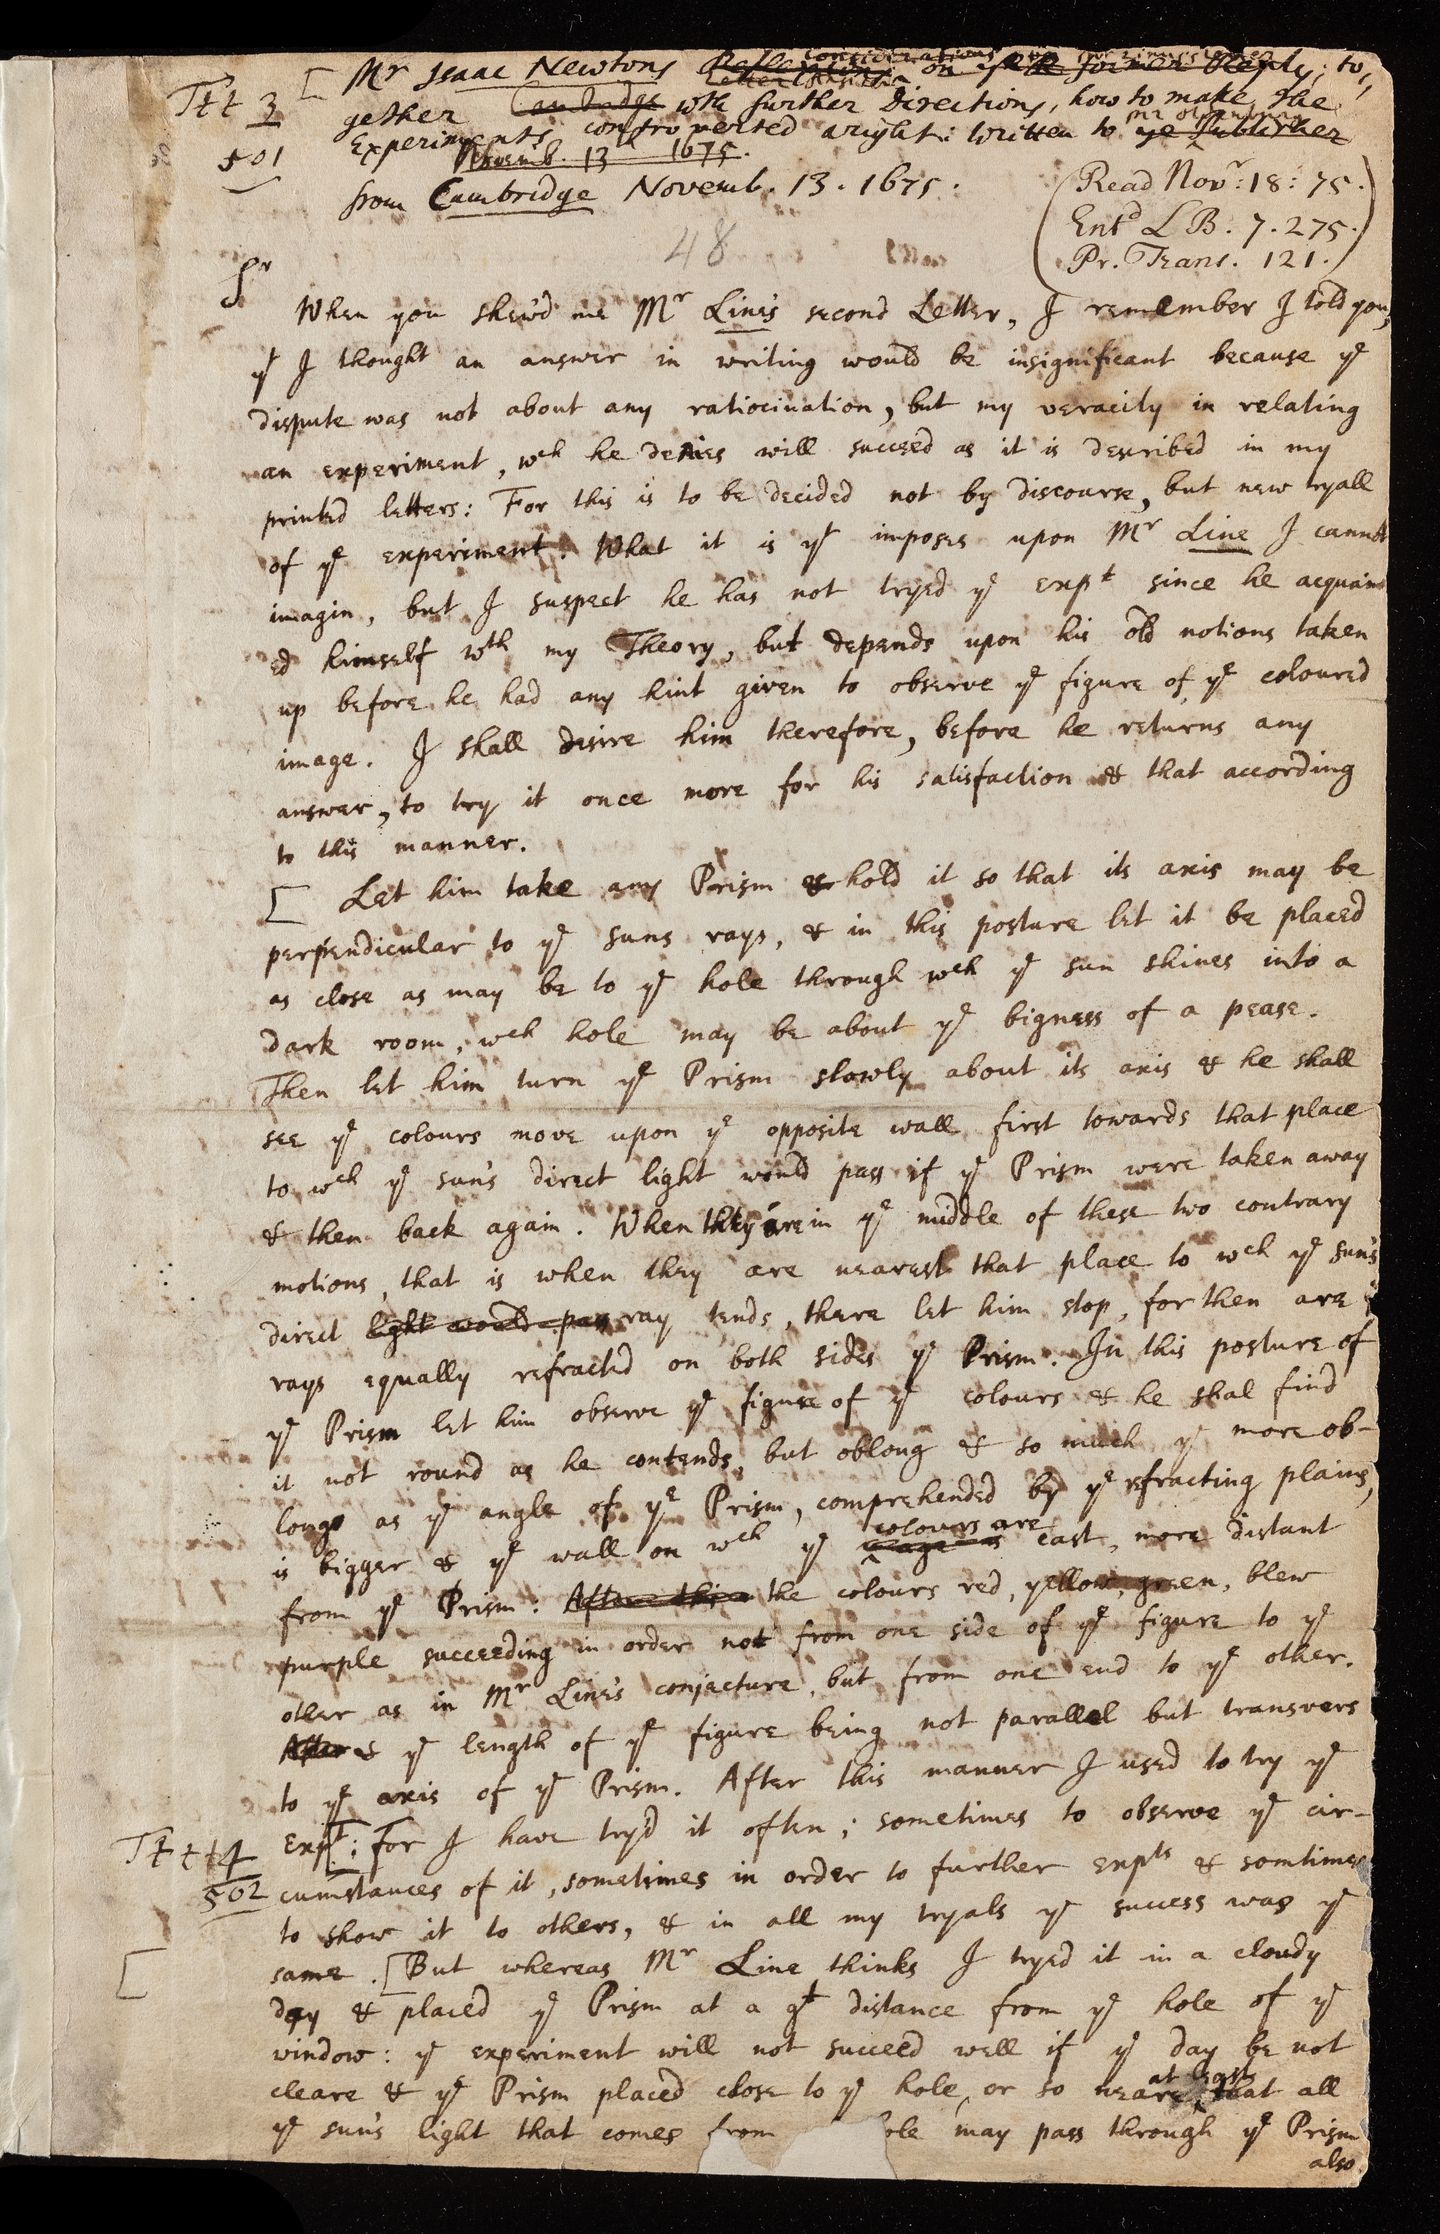 Mr Isaac Newtons considerations on ye former Reply; to,
gether Cambridge wth further Directions, how to make the
Experiments controverted aright: written to ye Publisher
Novemb. 13 1675.
from Cambridge Novemb. 13. 1675.
Ttt 3
501
(Read Novr: 18: 75.)
Entd L B. 7. 275.
Pr. Trans. 121.
48
Sr
When you shew'd me Mr Line's second Letter, I remember I told you,
yt I thought an answer in writing would be insignificant because ye
dispute was not about any ratiocination, but my veracity in relating
an experiment, wch he denies will succeed as it is described in my
printed letters: For this is to be decided not by discourse, but new tryall
of ye experiment. What it is yt imposes upon Mr Line I cannot
imagin, but I suspect he has not tryed ye expt since he acquaint
ed himself wth my Theory, but depends upon his old notions taken
up before he had any hint given to observe ye figure of ye coloured
image. I shall desire him therefore, before he returns any
answer, to try it once more for his satisfaction & that according
to this manner.
[ Let him take any Prism & hold it so that its axis may be
perpendicular to ye suns rays, & in this posture let it be placed
as close as may be to ye hole through wch ye sun shines into a
dark room, wch hole may be about ye bigness of a pease.
Then let him turn ye Prism slowly about its axis & he shall
see ye colours move upon ye opposite wall first towards that place
to wch ye sun's direct light would pass if ye Prism were taken away
& then back again. When they are in ye middle of these two contrary
motions, that is when they are nearest that place to wch ye sun's
direct light would pass ray tends, there let him stop, for then are ye
rays equally refracted on both sides ye Prism. In this posture of
ye Prism let him observe ye figure of ye colours & he shal find
it not round as he contends, but oblong & so much ye more ob-
long as ye angle of ye Prism, comprehended by ye refracting plains,
is bigger & ye wall on wch ye image is colours are cast, more distant
from ye Prism: After this the colours red, yellow, green, blew
purple succeeding in order not from one side of ye figure to ye
other as in Mr Line's conjecture, but from one end to ye other.
After & ye length of ye figure being not parallel but transvers
to ye axis of ye Prism. After this manner I used to try ye
Expt: For I have try'd it often; sometimes to observe ye cir-
Tttt4
502
cumstances of it, sometimes in order to further expts & somtimes
to show it to others, & in all my tryals ye success was ye
same. [But whereas Mr Line thinks I tryed it in a cloudy
day & placed ye Prism at a gt distance from ye hole of ye
window: ye experiment will not succeed well if ye day be not
cleare & ye Prism placed close to ye hole, or so neare at least that all
ye sun's light that comes from ole may pass through ye Prism
also.